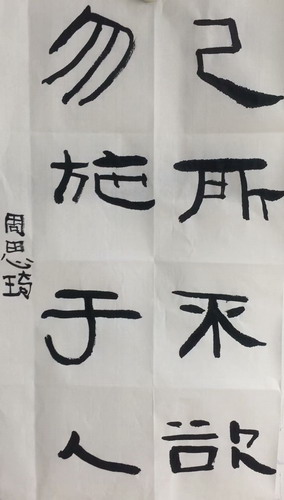 己所不欲
勿施于人
周思琦